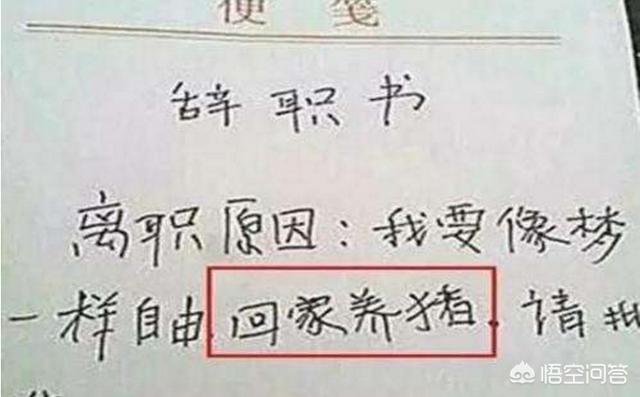 便笺
辞职书
离职原因:我要像梦
一样自由.回家养猪.请
悟空问答